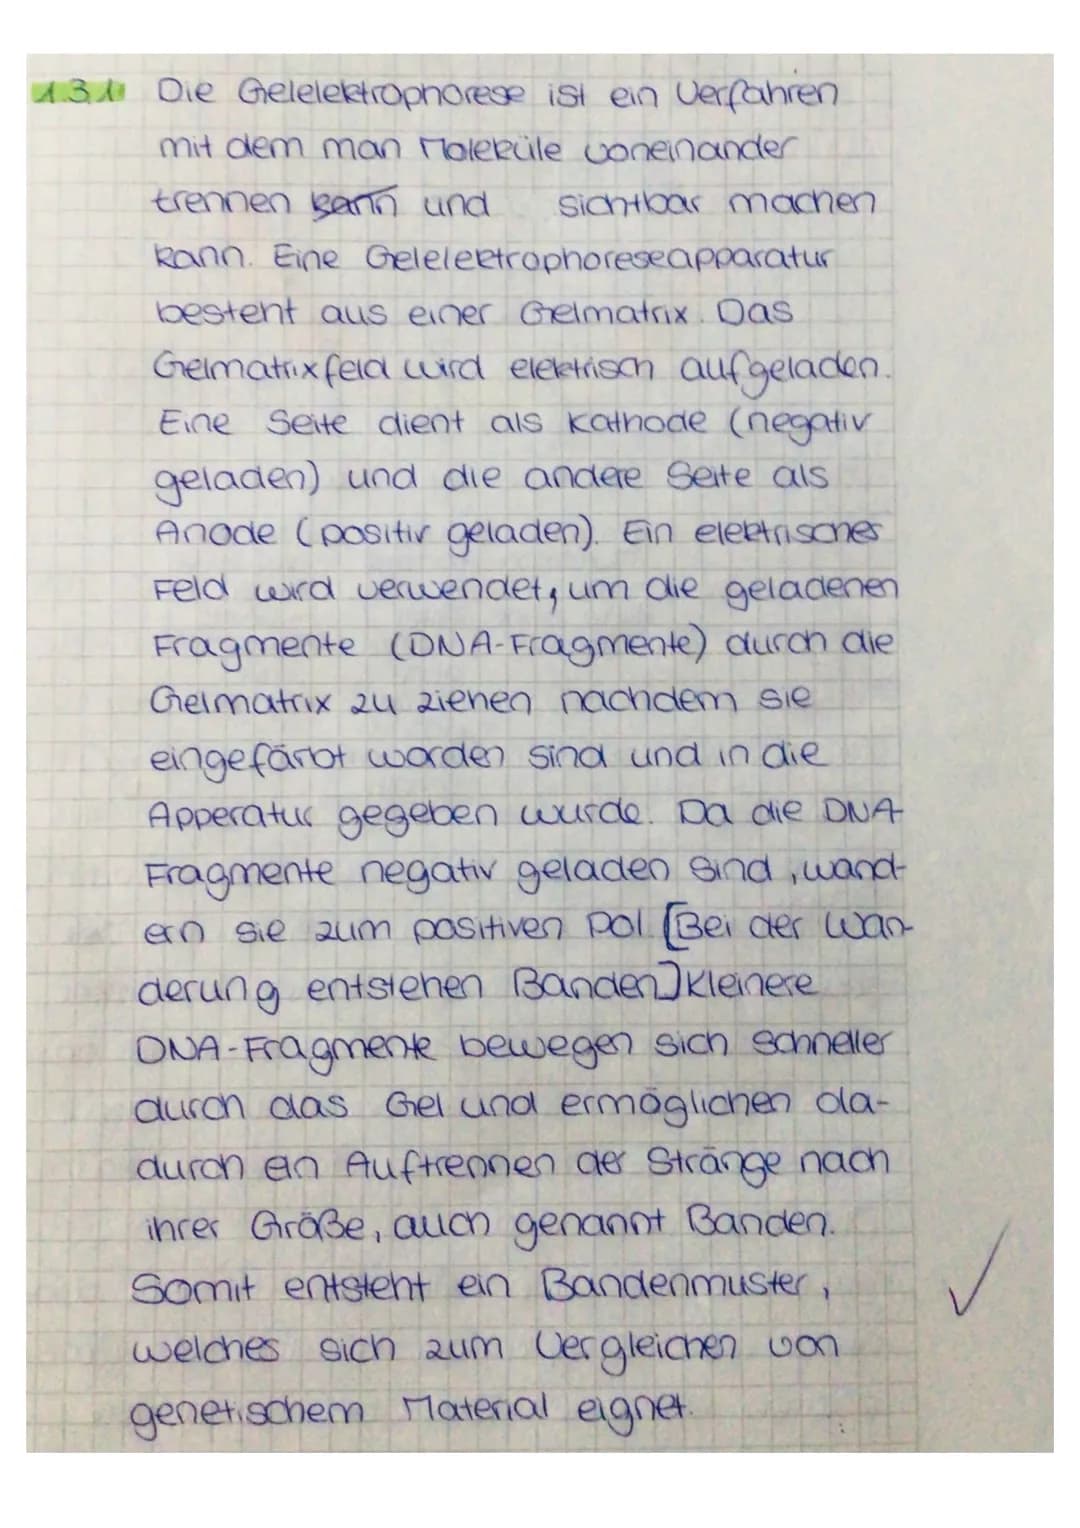 1.3.1 Die Gelelektrophorese ist ein Verfahren
mit dem man Moleküle voneinander
trennen kann und sichtbar machen
kann. Eine Gelelektrophoreseapparatur
besteht aus einer Gelmatrix. Das
Gelmatrixfeld wird elektrisch aufgeladen.
Eine Seite dient als Kathode (negativ
geladen) und die andere Seite als
Anode (positiv geladen). Ein elektrisches
Feld wird verwendet, um die geladenen
Fragmente (DNA-Fragmente) durch die
Gelmatrix zu ziehen nachdem sie
eingefärbt worden sind und in die
Apperatur gegeben wurde. Da die DNA
Fragmente negativ geladen sind, wand-
ern sie zum positiven Pol. [Bei der Wan-
derung entstehen Banden] Kleinere
DNA-Fragmente bewegen sich schneller
durch das Gel und ermöglichen da-
durch ein Auftrennen der Stränge nach
ihrer Größe, auch genannt Banden.
Somit entsteht ein Bandenmuster,
welches sich zum Vergleichen von
genetischem Material eignet.